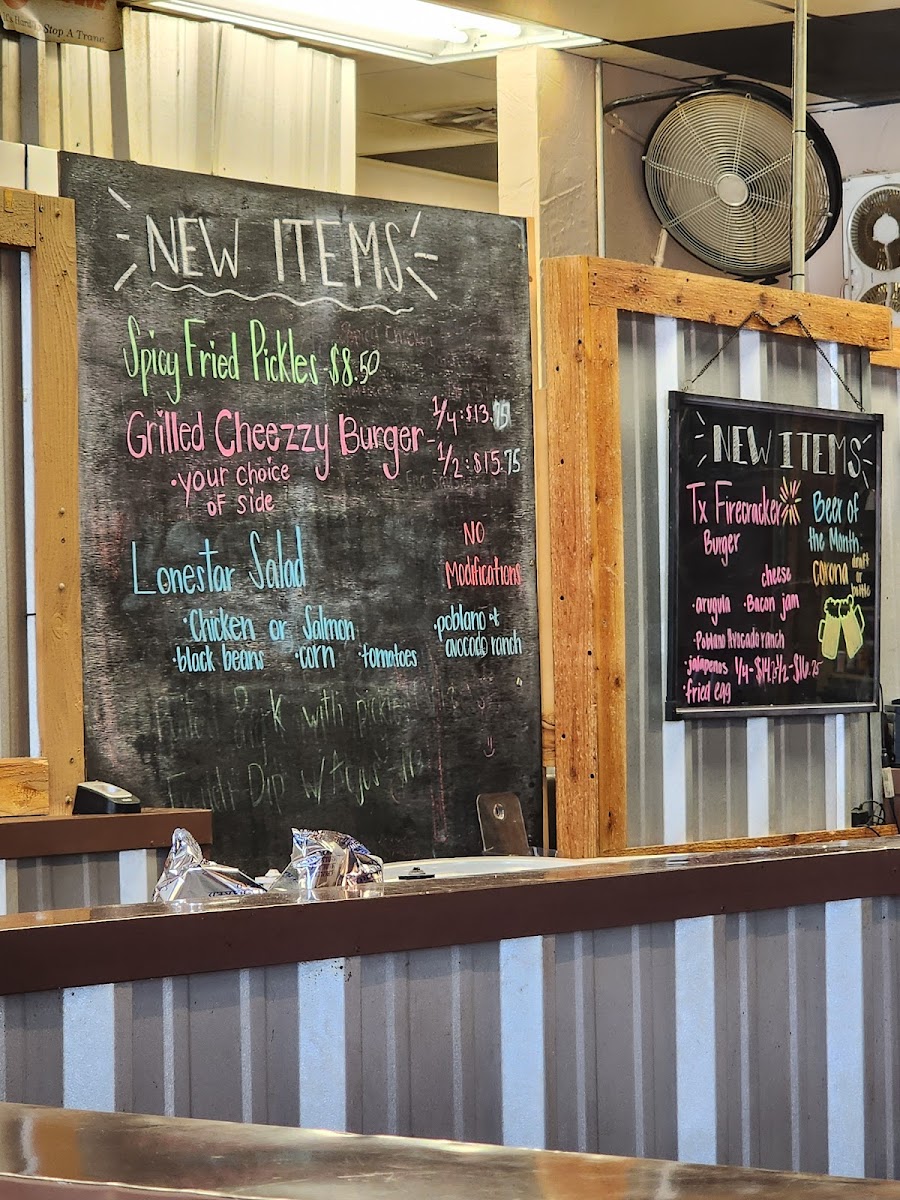 Stop A Trane.
NEW ITEMS
Spicy Fried Pickles $8.50
Grilled Cheezzy Burger - 1/4:$13.75
1/2:$15.75
•your choice
of side
Lonestar Salad
NO
Modifications
•Chicken or Salmon
•black beans •corn •tomatoes
•poblano +
avocado ranch
with
Dip w/
NEW ITEMS
Tx Firecracker
Burger
cheese
•arugula •Bacon jam
•Poblano Avocado ranch
•jalapenos 1/4-$14.25 1/2-$16.25
•fried egg
Beer of
the Month
corona draft
or
bottle